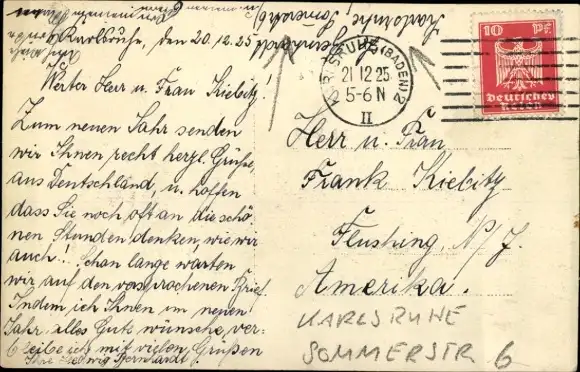 Karlsruhe, den 20.12.25
Werter Herr u. Frau Kiebitz!
Zum neuen Jahr senden
wir Ihnen recht herzl. Grüße
aus Deutschland, u. hoffen
dass Sie noch oft an die schö-
nen Stunden denken, wie wir
auch! Schon lange warten
wir auf den versprochenen Brief.
Indem ich Ihnen im neuen
Jahr alles Gute wünsche, ver-
bleibe ich mit vielen Grüßen
Ihre Bernhardt.
Karlsruhe
KARLSRUHE (BADEN) 2
21 12 25
5-6 N
II
10 Pf
Deutsches
Reich
Herr u. Frau
Frank Kiebitz
Flushing, N/J.
Amerika.
KARLSRUHE
SOMMERSTR 6